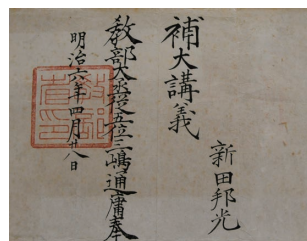 新田邦光
補大講義
教部大丞従五位三嶋通庸奉
明治六年四月廿八日